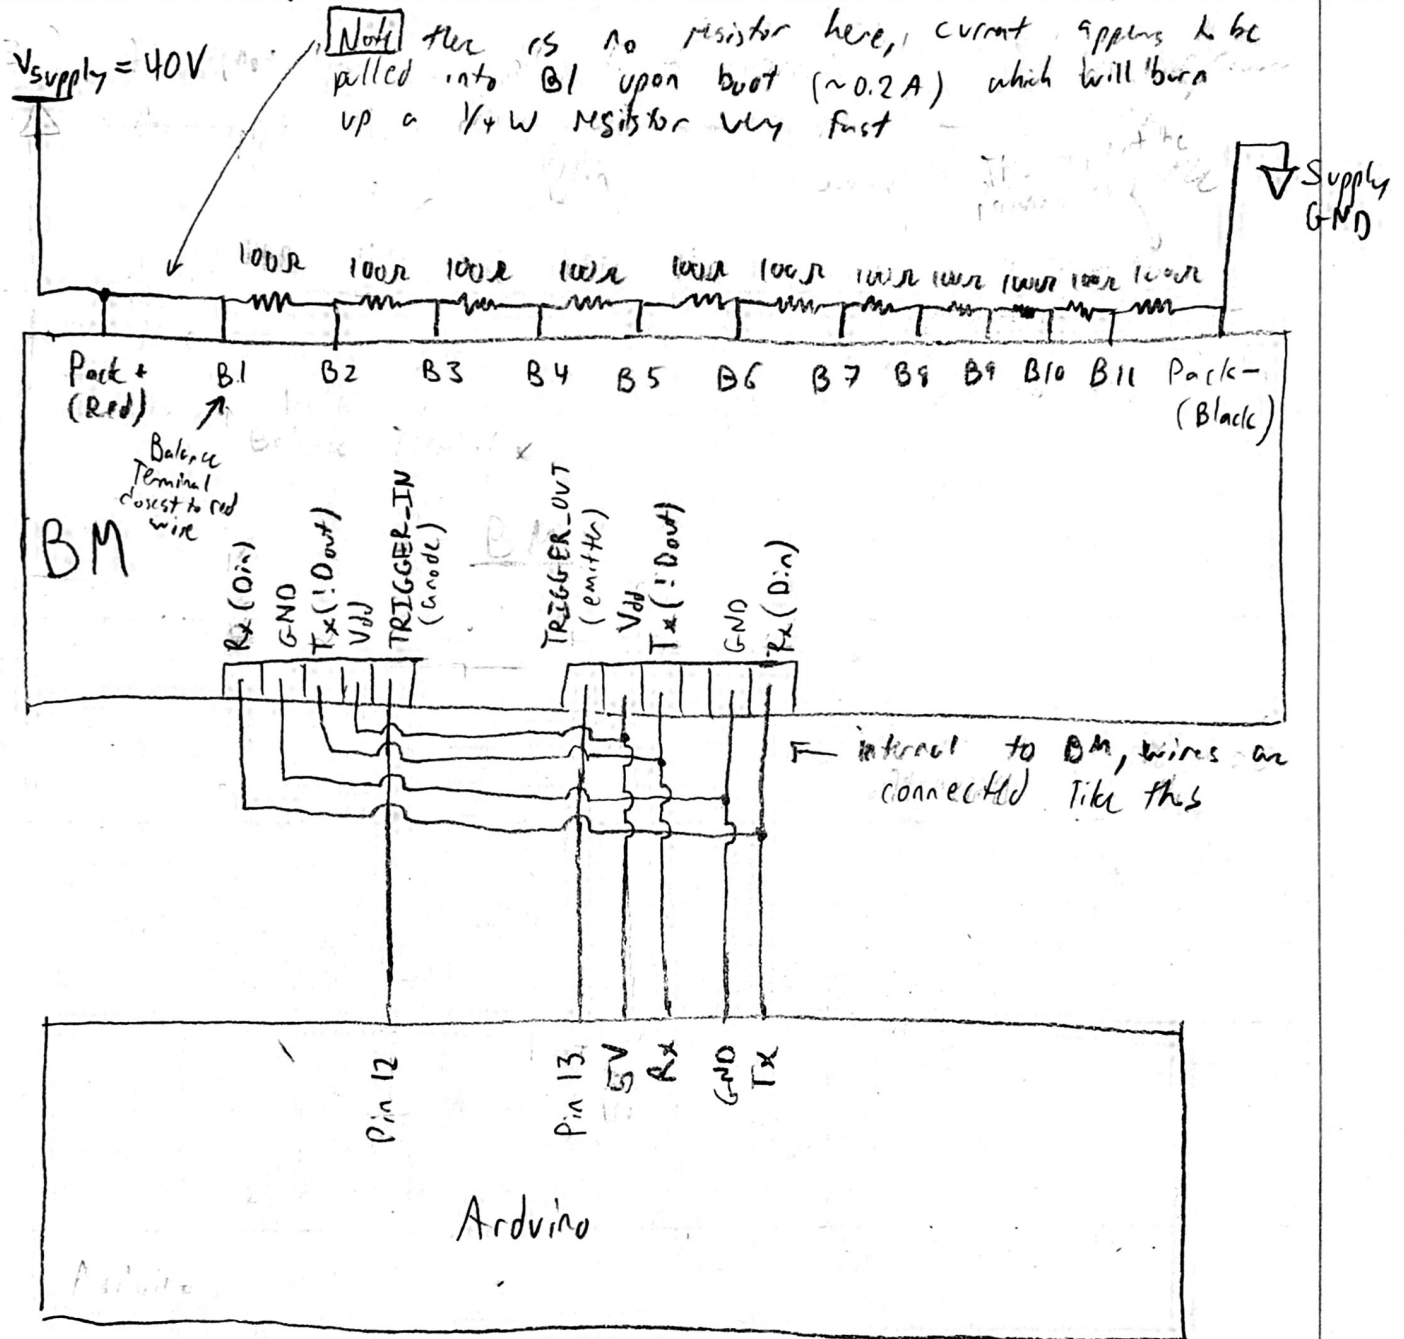 Note ther is no resistor here, current appears to be
pulled into B1 upon boot (~0.2 A) which will burn
up a 1/4 W resistor very fast
Vsupply = 40V
Supply
GND
100Ω 100Ω 100Ω 100Ω 100Ω 100Ω 100Ω 100Ω 100Ω 100Ω 100Ω
Pack + B1 B2 B3 B4 B5 B6 B7 B8 B9 B10 B11 Pack -
(Red) (Black)
Balance
Terminal
closest to red
wire
BM
Rx (Din)
GND
Tx (!Dout)
Vdd
TRIGGER_IN
(anode)
TRIGGER_OUT
(emitter)
Vdd
Tx (!Dout)
GND
Rx (Din)
internal to BM, wires are
connected like this
Pin 12
Pin 13
5V
Rx
GND
Tx
Arduino